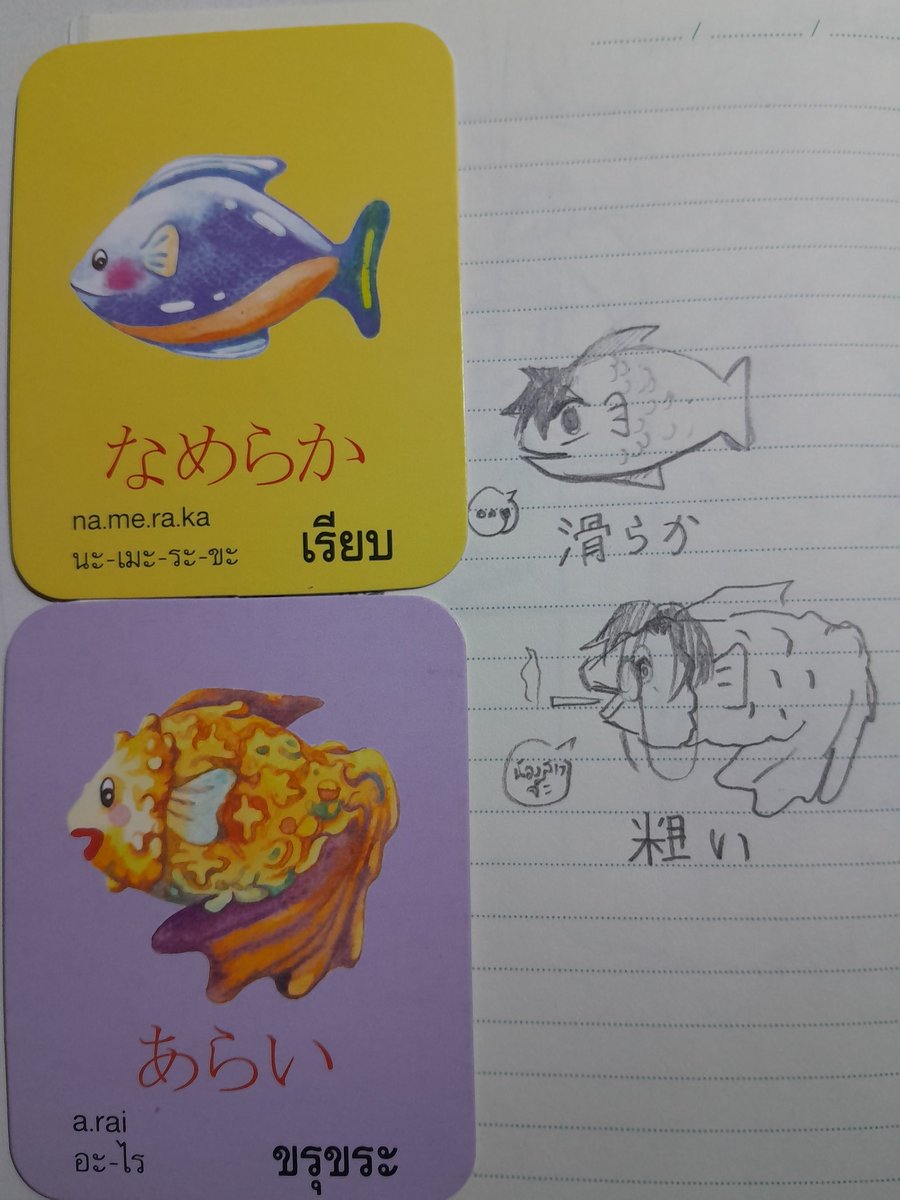 / /
なめらか
na.me.ra.ka
นะ-เมะ-ระ-ขะ
เรียบ
滑らか
あらい
a.rai
อะ-ไร
ขรุขระ
粗い